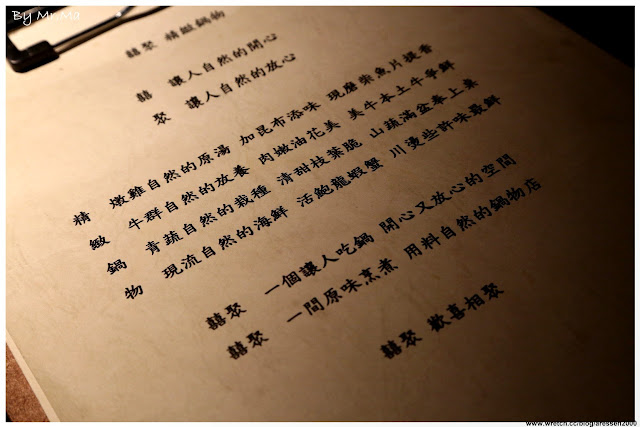 By Mr.Ma
囍聚 精緻鍋物
囍 讓人自然的開心
聚 讓人自然的放心
精 燉雞自然的原湯 加昆布添味 現磨柴魚片提香
緻 牛群自然的放養 肉嫩油花美 美牛本土牛爭鮮
鍋 青蔬自然的栽種 清甜枝葉脆 山蔬滿盆奉上桌
物 現流自然的海鮮 活鮑龍蝦蟹 川燙些許味最鮮
囍聚 一個讓人吃鍋 開心又放心的空間
囍聚 一間原味烹煮 用料自然的鍋物店
囍聚 歡喜相聚
www.wretch.cc/blog/aressen2006